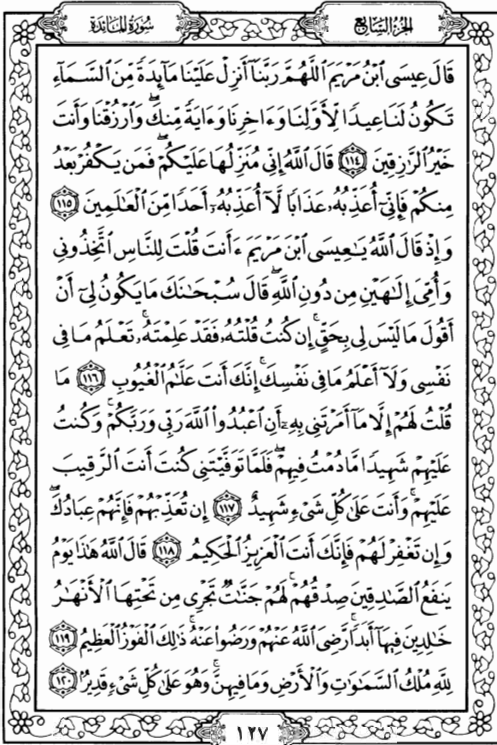 سُورَةُ المَائِدَةِ
الجُزءُ السَّابِعُ
قَالَ عِيسَى ٱبْنُ مَرْيَمَ ٱللَّهُمَّ رَبَّنَآ أَنزِلْ عَلَيْنَا مَآئِدَةً مِّنَ ٱلسَّمَآءِ
تَكُونُ لَنَا عِيدًا لِّأَوَّلِنَا وَءَاخِرِنَا وَءَايَةً مِّنكَ ۖ وَٱرْزُقْنَا وَأَنتَ
خَيْرُ ٱلرَّٰزِقِينَ ١١٤ قَالَ ٱللَّهُ إِنِّى مُنَزِّلُهَا عَلَيْكُمْ ۖ فَمَن يَكْفُرْ بَعْدُ
مِنكُمْ فَإِنِّىٓ أُعَذِّبُهُۥ عَذَابًا لَّآ أُعَذِّبُهُۥٓ أَحَدًا مِّنَ ٱلْعَٰلَمِينَ ١١٥
وَإِذْ قَالَ ٱللَّهُ يَٰعِيسَى ٱبْنَ مَرْيَمَ ءَأَنتَ قُلْتَ لِلنَّاسِ ٱتَّخِذُونِى
وَأُمِّىَ إِلَٰهَيْنِ مِن دُونِ ٱللَّهِ ۖ قَالَ سُبْحَٰنَكَ مَا يَكُونُ لِىٓ أَنْ
أَقُولَ مَا لَيْسَ لِى بِحَقٍّ ۚ إِن كُنتُ قُلْتُهُۥ فَقَدْ عَلِمْتَهُۥ ۚ تَعْلَمُ مَا فِى
نَفْسِى وَلَآ أَعْلَمُ مَا فِى نَفْسِكَ ۚ إِنَّكَ أَنتَ عَلَّٰمُ ٱلْغُيُوبِ ١١٦ مَا
قُلْتُ لَهُمْ إِلَّا مَآ أَمَرْتَنِى بِهِۦٓ أَنِ ٱعْبُدُوا۟ ٱللَّهَ رَبِّى وَرَبَّكُمْ ۚ وَكُنتُ
عَلَيْهِمْ شَهِيدًا مَّا دُمْتُ فِيهِمْ ۖ فَلَمَّا تَوَفَّيْتَنِى كُنتَ أَنتَ ٱلرَّقِيبَ
عَلَيْهِمْ ۚ وَأَنتَ عَلَىٰ كُلِّ شَىْءٍ شَهِيدٌ ١١٧ إِن تُعَذِّبْهُمْ فَإِنَّهُمْ عِبَادُكَ ۖ
وَإِن تَغْفِرْ لَهُمْ فَإِنَّكَ أَنتَ ٱلْعَزِيزُ ٱلْحَكِيمُ ١١٨ قَالَ ٱللَّهُ هَٰذَا يَوْمُ
يَنفَعُ ٱلصَّٰدِقِينَ صِدْقُهُمْ ۚ لَهُمْ جَنَّٰتٌ تَجْرِى مِن تَحْتِهَا ٱلْأَنْهَٰرُ
خَٰلِدِينَ فِيهَآ أَبَدًا ۚ رَّضِىَ ٱللَّهُ عَنْهُمْ وَرَضُوا۟ عَنْهُ ۚ ذَٰلِكَ ٱلْفَوْزُ ٱلْعَظِيمُ ١١٩
لِلَّهِ مُلْكُ ٱلسَّمَٰوَٰتِ وَٱلْأَرْضِ وَمَا فِيهِنَّ ۚ وَهُوَ عَلَىٰ كُلِّ شَىْءٍ قَدِيرٌۢ ١٢٠
١٢٧